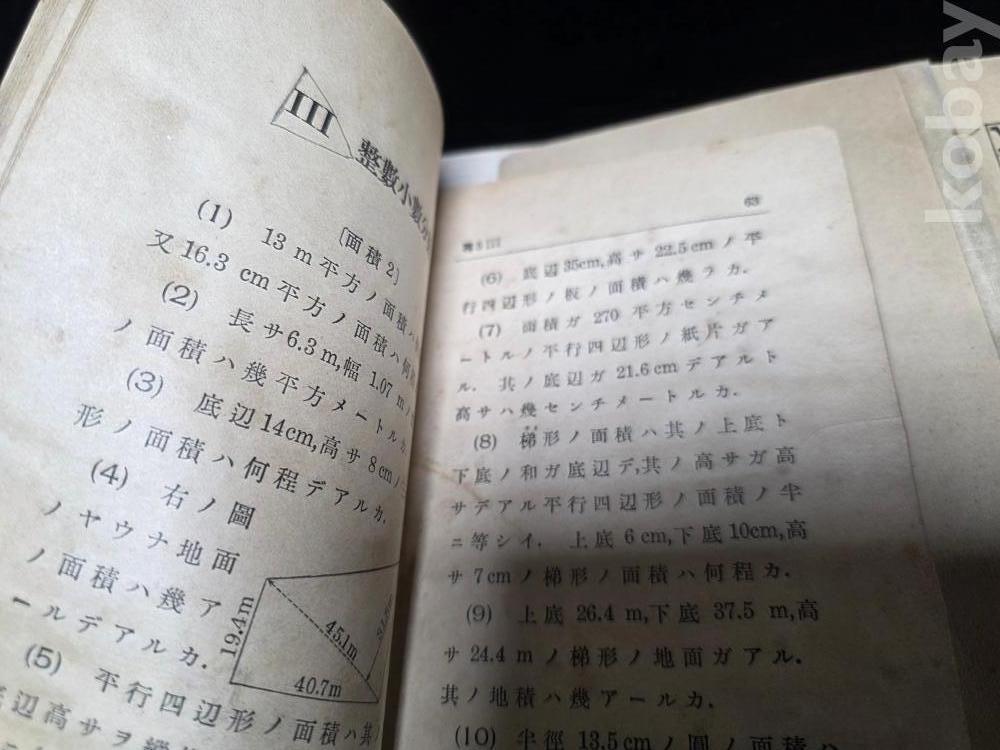 III
整數小數
〔面積 2〕
(1) 13 m 平方ノ面積ハ
又 16.3 cm 平方ノ面積ハ何
(2) 長サ 6.3 m, 幅 1.07 m ノ
ノ面積ハ幾平方メートルカ.
(3) 底辺 14cm, 高サ 8cm ノ
形ノ面積ハ何程デアルカ.
(4) 右ノ圖
ノヤウナ地面
ノ面積ハ幾ア
ールデアルカ.
19.4m
45.1m
40.7m
(5) 平行四辺形ノ面積ハ其
辺高サヲ
63
(6) 底辺 35cm, 高サ 22.5cm ノ平
行四辺形ノ板ノ面積ハ幾ラカ.
(7) 面積ガ 270 平方センチメ
ートルノ平行四辺形ノ紙片ガア
ル. 其ノ底辺ガ 21.6cm デアルト
高サハ幾センチメートルカ.
(8) 梯形ノ面積ハ其ノ上底ト
下底ノ和ガ底辺デ, 其ノ高サガ高
サデアル平行四辺形ノ面積ノ半
ニ等シイ. 上底 6 cm, 下底 10cm, 高
サ 7cm ノ梯形ノ面積ハ何程カ.
(9) 上底 26.4 m, 下底 37.5 m, 高
サ 24.4 m ノ梯形ノ地面ガアル.
其ノ地積ハ幾アールカ.
(10) 半徑 13.5cm ノ圓ノ面積ハ
kobay